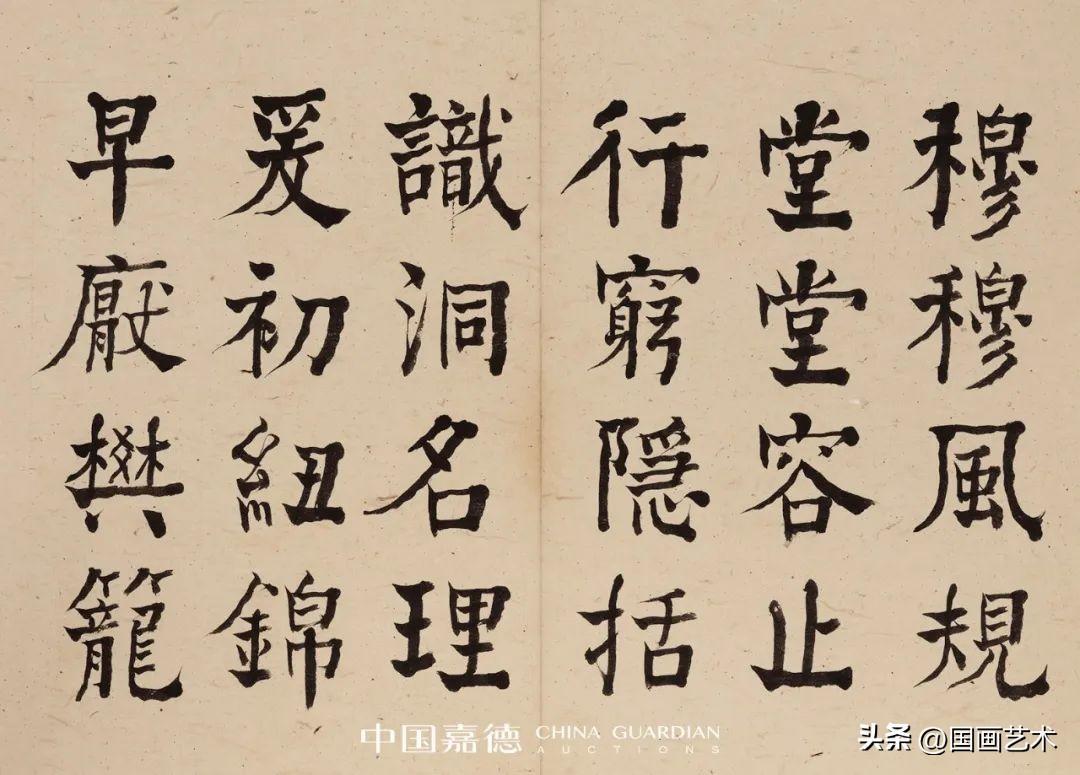 穆穆風規
堂堂容止
行窮隱括
識洞名理
爰初紐錦
早厭樊籠
中国嘉德 CHINA GUARDIAN
AUCTIONS
头条 @国画艺术